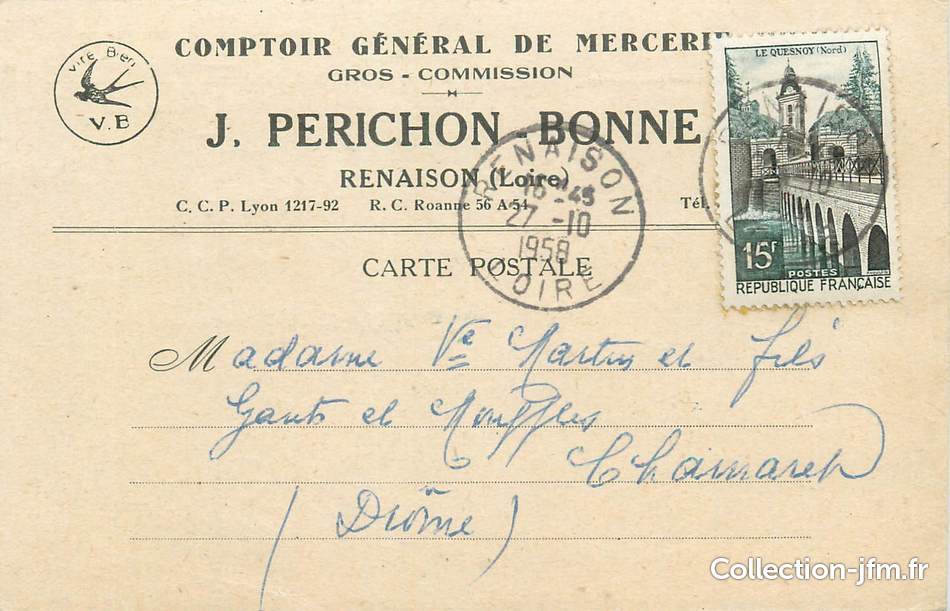 Vite Bien
V.B
COMPTOIR GÉNÉRAL DE MERCERIE
GROS - COMMISSION
J. PERICHON-BONNE
RENAISON (Loire)
C. C. P. Lyon 1217-92 R. C. Roanne 56 A 54 Tél.
CARTE POSTALE
LE QUESNOY (Nord)
15F
POSTES
REPUBLIQUE FRANÇAISE
RENAISON
16-45
27-10
1958
LOIRE
Madame Ve Martin et fils
Gants et Mouffles
Chamaret
(Drôme)
Collection-jfm.fr